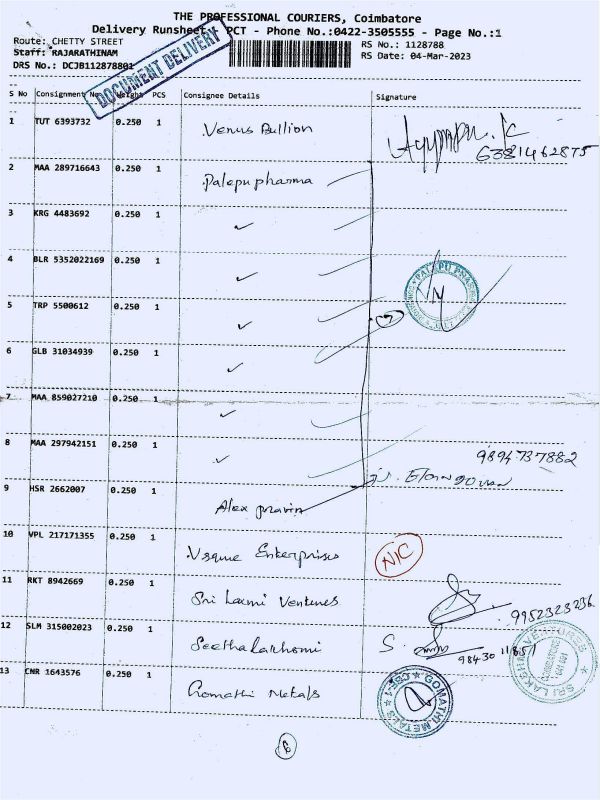 THE PROFESSIONAL COURIERS, Coimbatore
Delivery Runsheet - PCT - Phone No.:0422-3505555 - Page No.:1
Route: CHETTY STREET
RS No.: 1128788
Staff: RAJARATHINAM
RS Date: 04-Mar-2023
DRS No.: DCJB112878801
DOCUMENT DELIVERY
S No Consignment No Weight PCS Consignee Details Signature
1 TUT 6393732 0.250 1 Venus Bullion
6381462875
2 MAA 289716643 0.250 1 Palepu pharma
3 KRG 4483692 0.250 1 ✓
4 BLR 5352022169 0.250 1 ✓
PALEPU PHARMA
5 TRP 5500612 0.250 1 ✓
7
6 GLB 31034939 0.250 1 ✓
7 MAA 859027210 0.250 1 ✓
8 MAA 297942151 0.250 1 ✓
9894737882
9 HSR 2662007 0.250 1 Alex pravin
10 VPL 217171355 0.250 1 Enterprises
NIC
11 RKT 8942669 0.250 1 Sri Laxmi Ventures
9952323236
12 SLM 315002023 0.250 1 Seethalakhomi
98430 11851
SRI LAKSHMI VENTURES
13 CNR 1643576 0.250 1 Gomathi Metals
GOMATHI METALS CBE-1